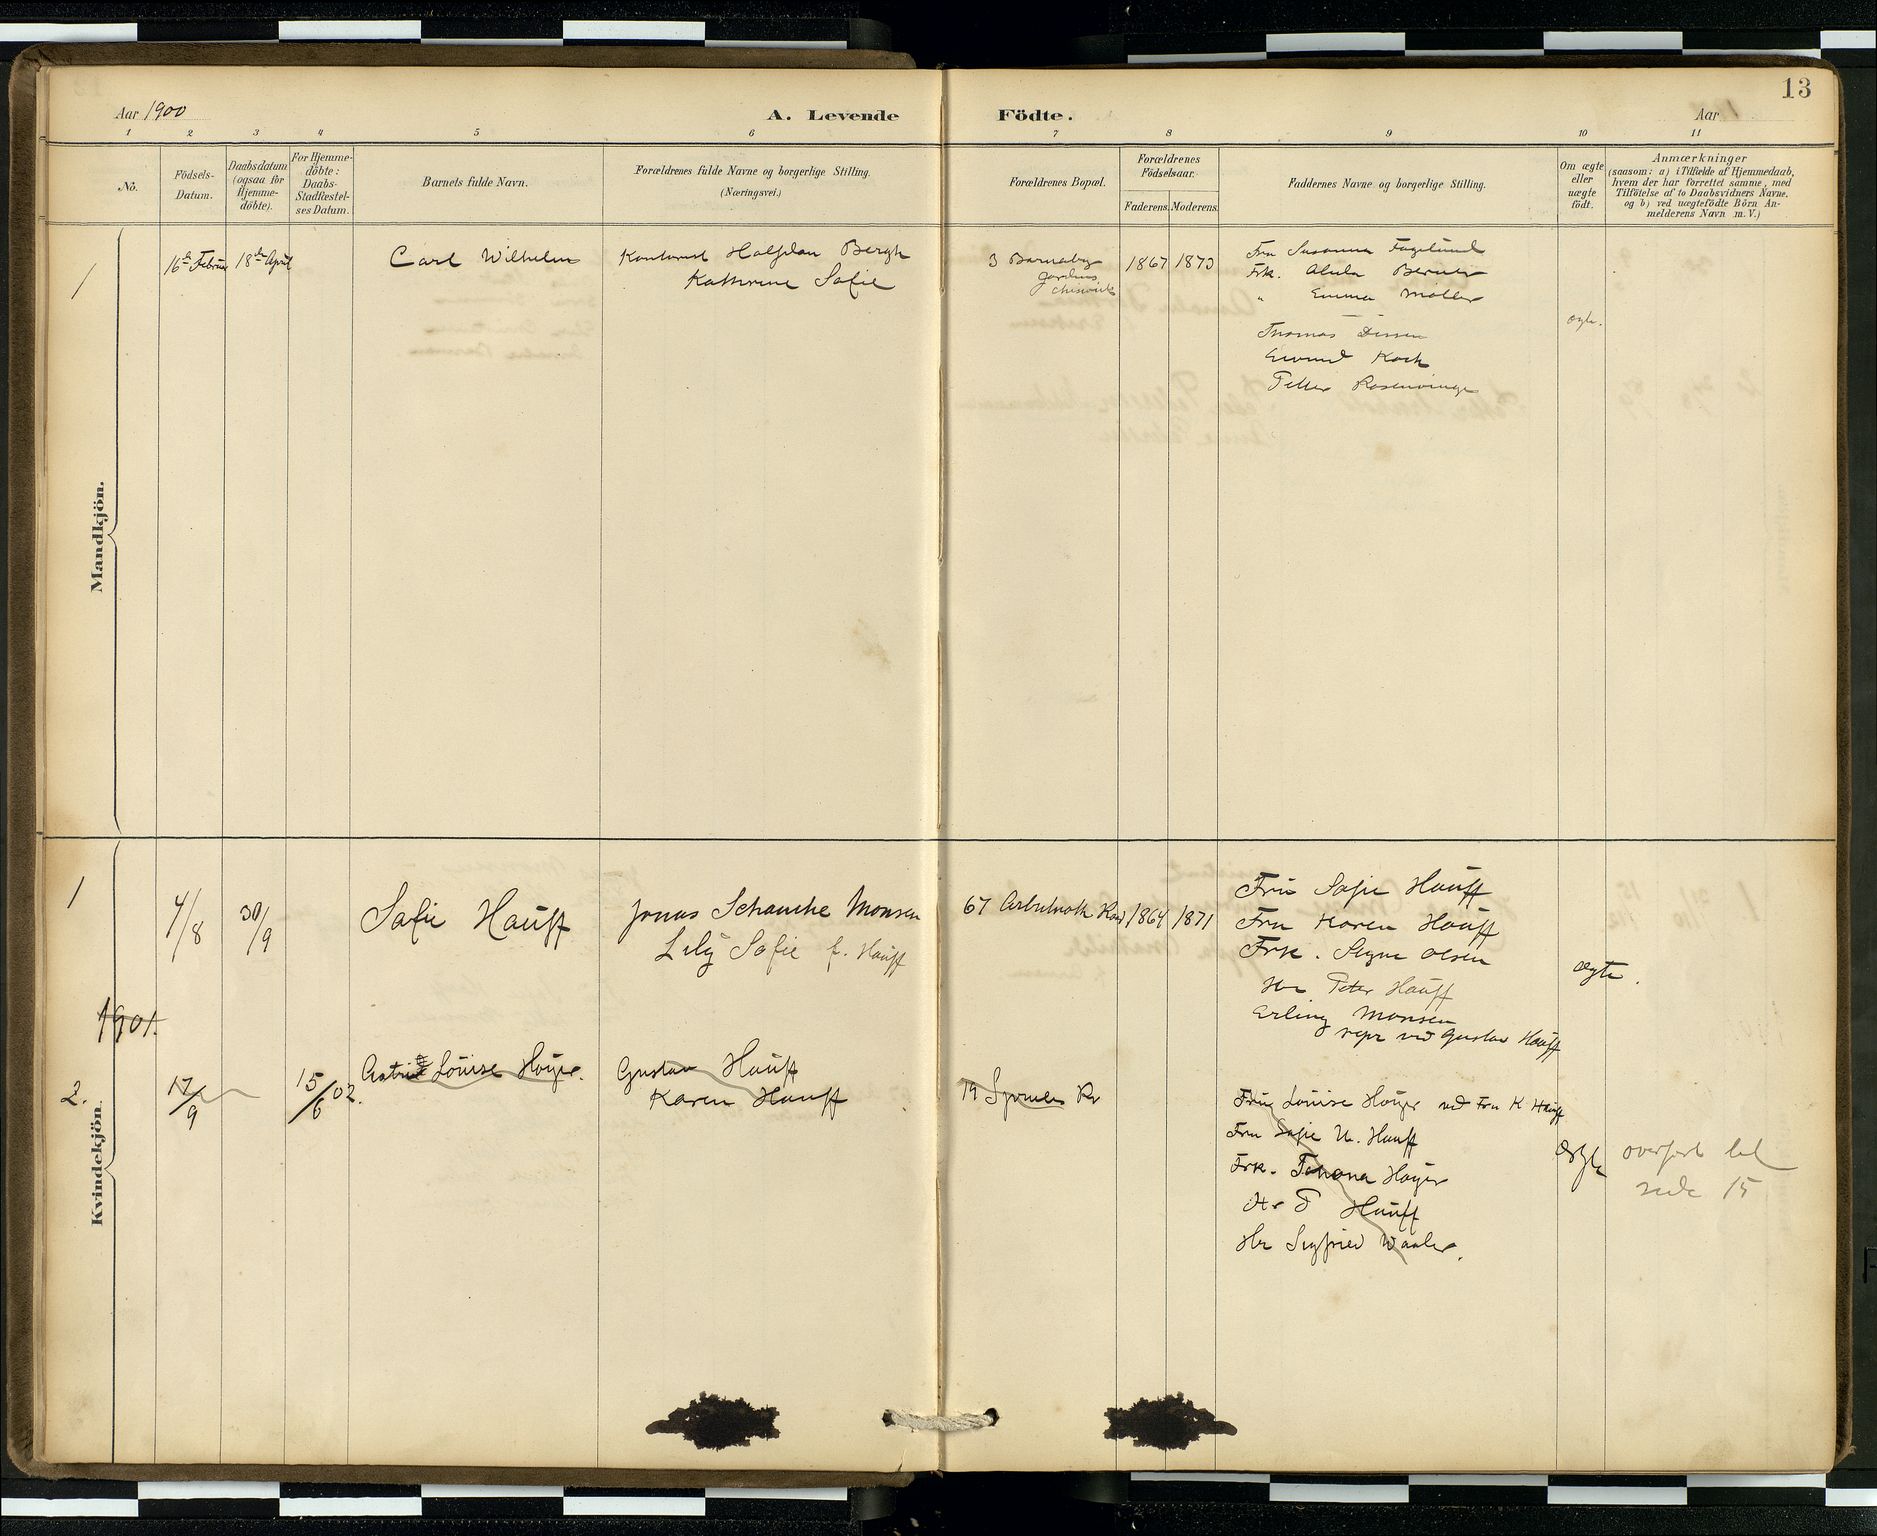 13
Aar 1900
A. Levende
Födte.
Aar
1 2 3 4 5 6 7 8 9 10 11
No.
Födsels-
Datum.
Daabsdatum
(ogsaa for
Hjemme-
döbte).
For Hjemme-
döbte:
Daabs-
Stadfæstel-
ses Datum.
Barnets fulde Navn.
Forældrenes fulde Navne og borgerlige Stilling.
(Næringsvei.)
Forældrenes Bopæl.
Forældrenes
Födselsaar.
Faderens. Moderens.
Faddernes Navne og borgerlige Stilling.
Om ægte
eller
uægte
födt.
Anmærkninger
(saasom: a) i Tilfælde af Hjemmedaab,
hvem der har forrettet samme, med
Tilföielse af to Daabsvidners Navne.
og b) ved uægtefödte Börn An-
melderens Navn m. V.)
Mandkjön.
1
16de Februar
18de April
Carl Wilhelm
Kontorist Halfdan Bergh
Kathrine Sofie
3 Barnaby
Gardens
Chiswick
1867 1873
Fru Susanna Fagelund
Frk. Berner
" Emma Møller
Thomas
Eivind Koch
Petter Rosenvinge
ægte.
Kvindekjön.
1
4/8
30/9
Sofie Hauff
Jonas Schancke Monsen
Lily Sofie f. Hauff
67 Arbuthnoth Road
1864 1871
Fru Sofie Hauff
Fru Karen Hauff
Frk. Signe Olsen
Hr Peter Hauff
Erling Monsen
repr ved Gustav Hauff
ægte.
1901.
2.
17/9
15/6 02.
Astrid Louise Høyer.
Gustav Hauff
Karen Hauff
19 Rd
Fru Louise Høyer ved Fru K Hauff
Fru Sofie M. Hauff
Frk. Thona Høyer
Hr P Hauff
Hr Sigfried Waaler.
Ægte
overført til
side 15